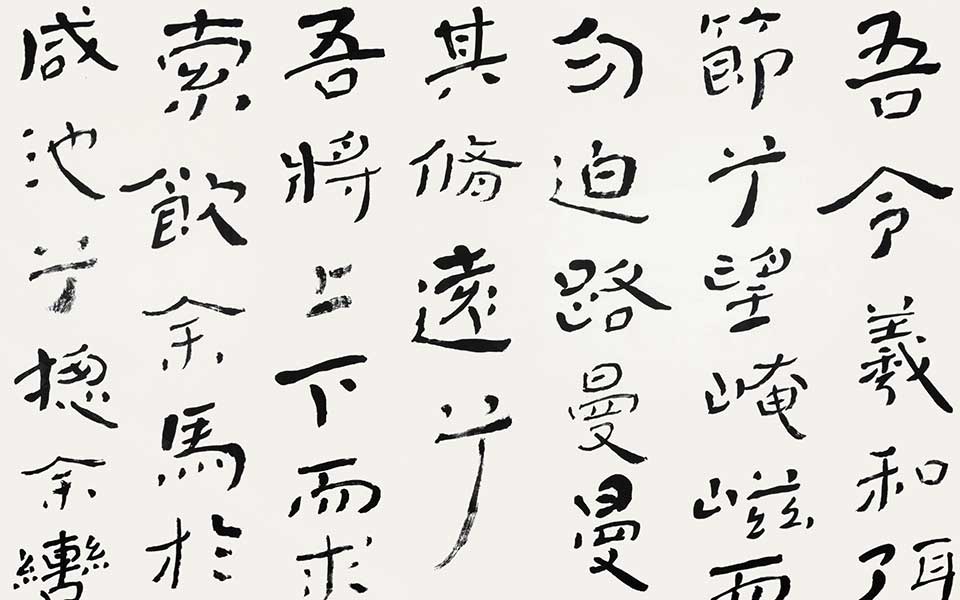 吾令羲和弭
節兮望崦嵫而
勿迫路曼曼
其脩遠兮
吾將上下而求
索飲余馬於
咸池兮摠余轡